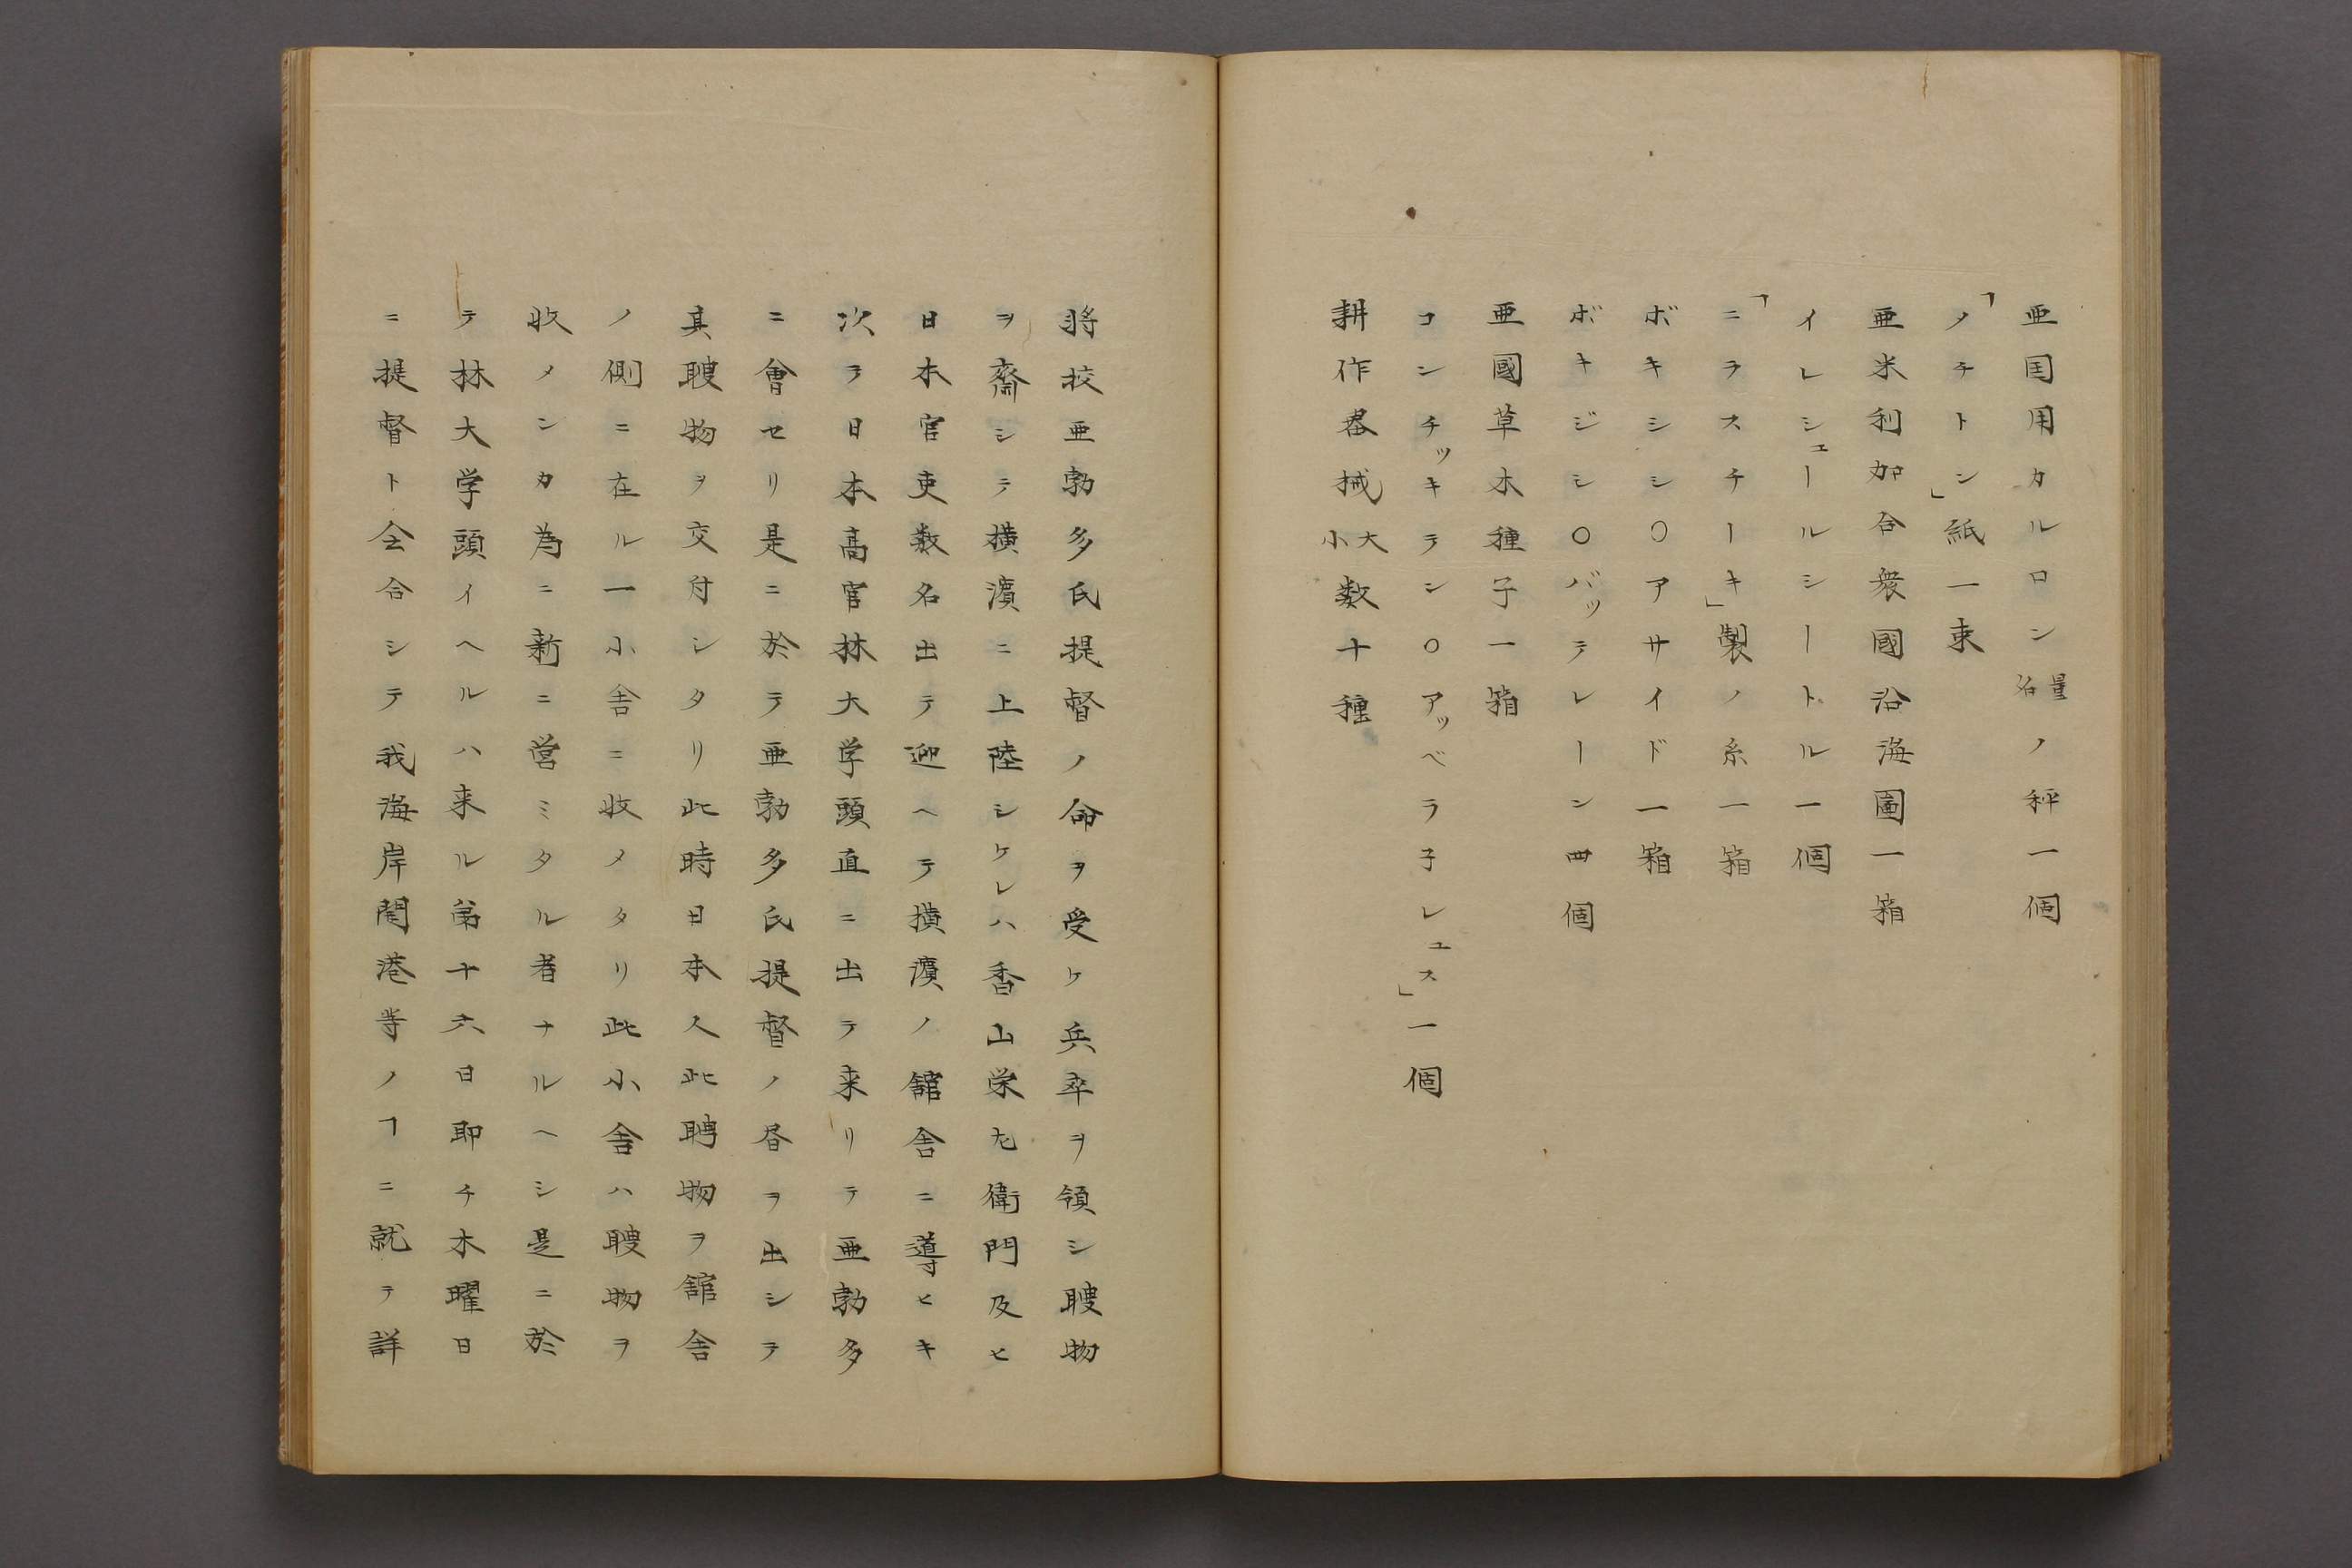 亜国用カルロン量名ノ秤一個
「ノチトン」紙一束
亜米利加合衆國沿海圖一箱
イレシェールシートル一個
「ニラスチーキ」製ノ糸一箱
ボキシシ〇アサイド一箱
ボキジシ〇バッテレーン四個
亜國草木種子一箱
コンチッキテン〇アッベラ子レュス」一個
耕作器械大小数十種
将校亜勃多氏提督ノ命ヲ受ケ兵卒ヲ領シ聘物
ヲ齋シテ横濱ニ上陸シケレハ香山栄左衛門及ヒ
日本官吏数名出テ迎ヘテ横濱ノ舘舎ニ導ヒキ
次テ日本高官林大学頭直ニ出テ来リテ亜勃多
ニ會セリ是ニ於テ亜勃多氏提督ノ昏ヲ出シテ
其聘物ヲ交付シタリ此時日本人此聘物ヲ舘舎
ノ側ニ在ル一小舎ニ收メタリ此小舎ハ聘物ヲ
收メンカ為ニ新ニ営ミタル者ナルヘシ是ニ於
テ林大学頭イヘルハ来ル第十六日即チ木曜日
ニ提督ト仝合シテ我海岸開港等ノヿニ就テ詳